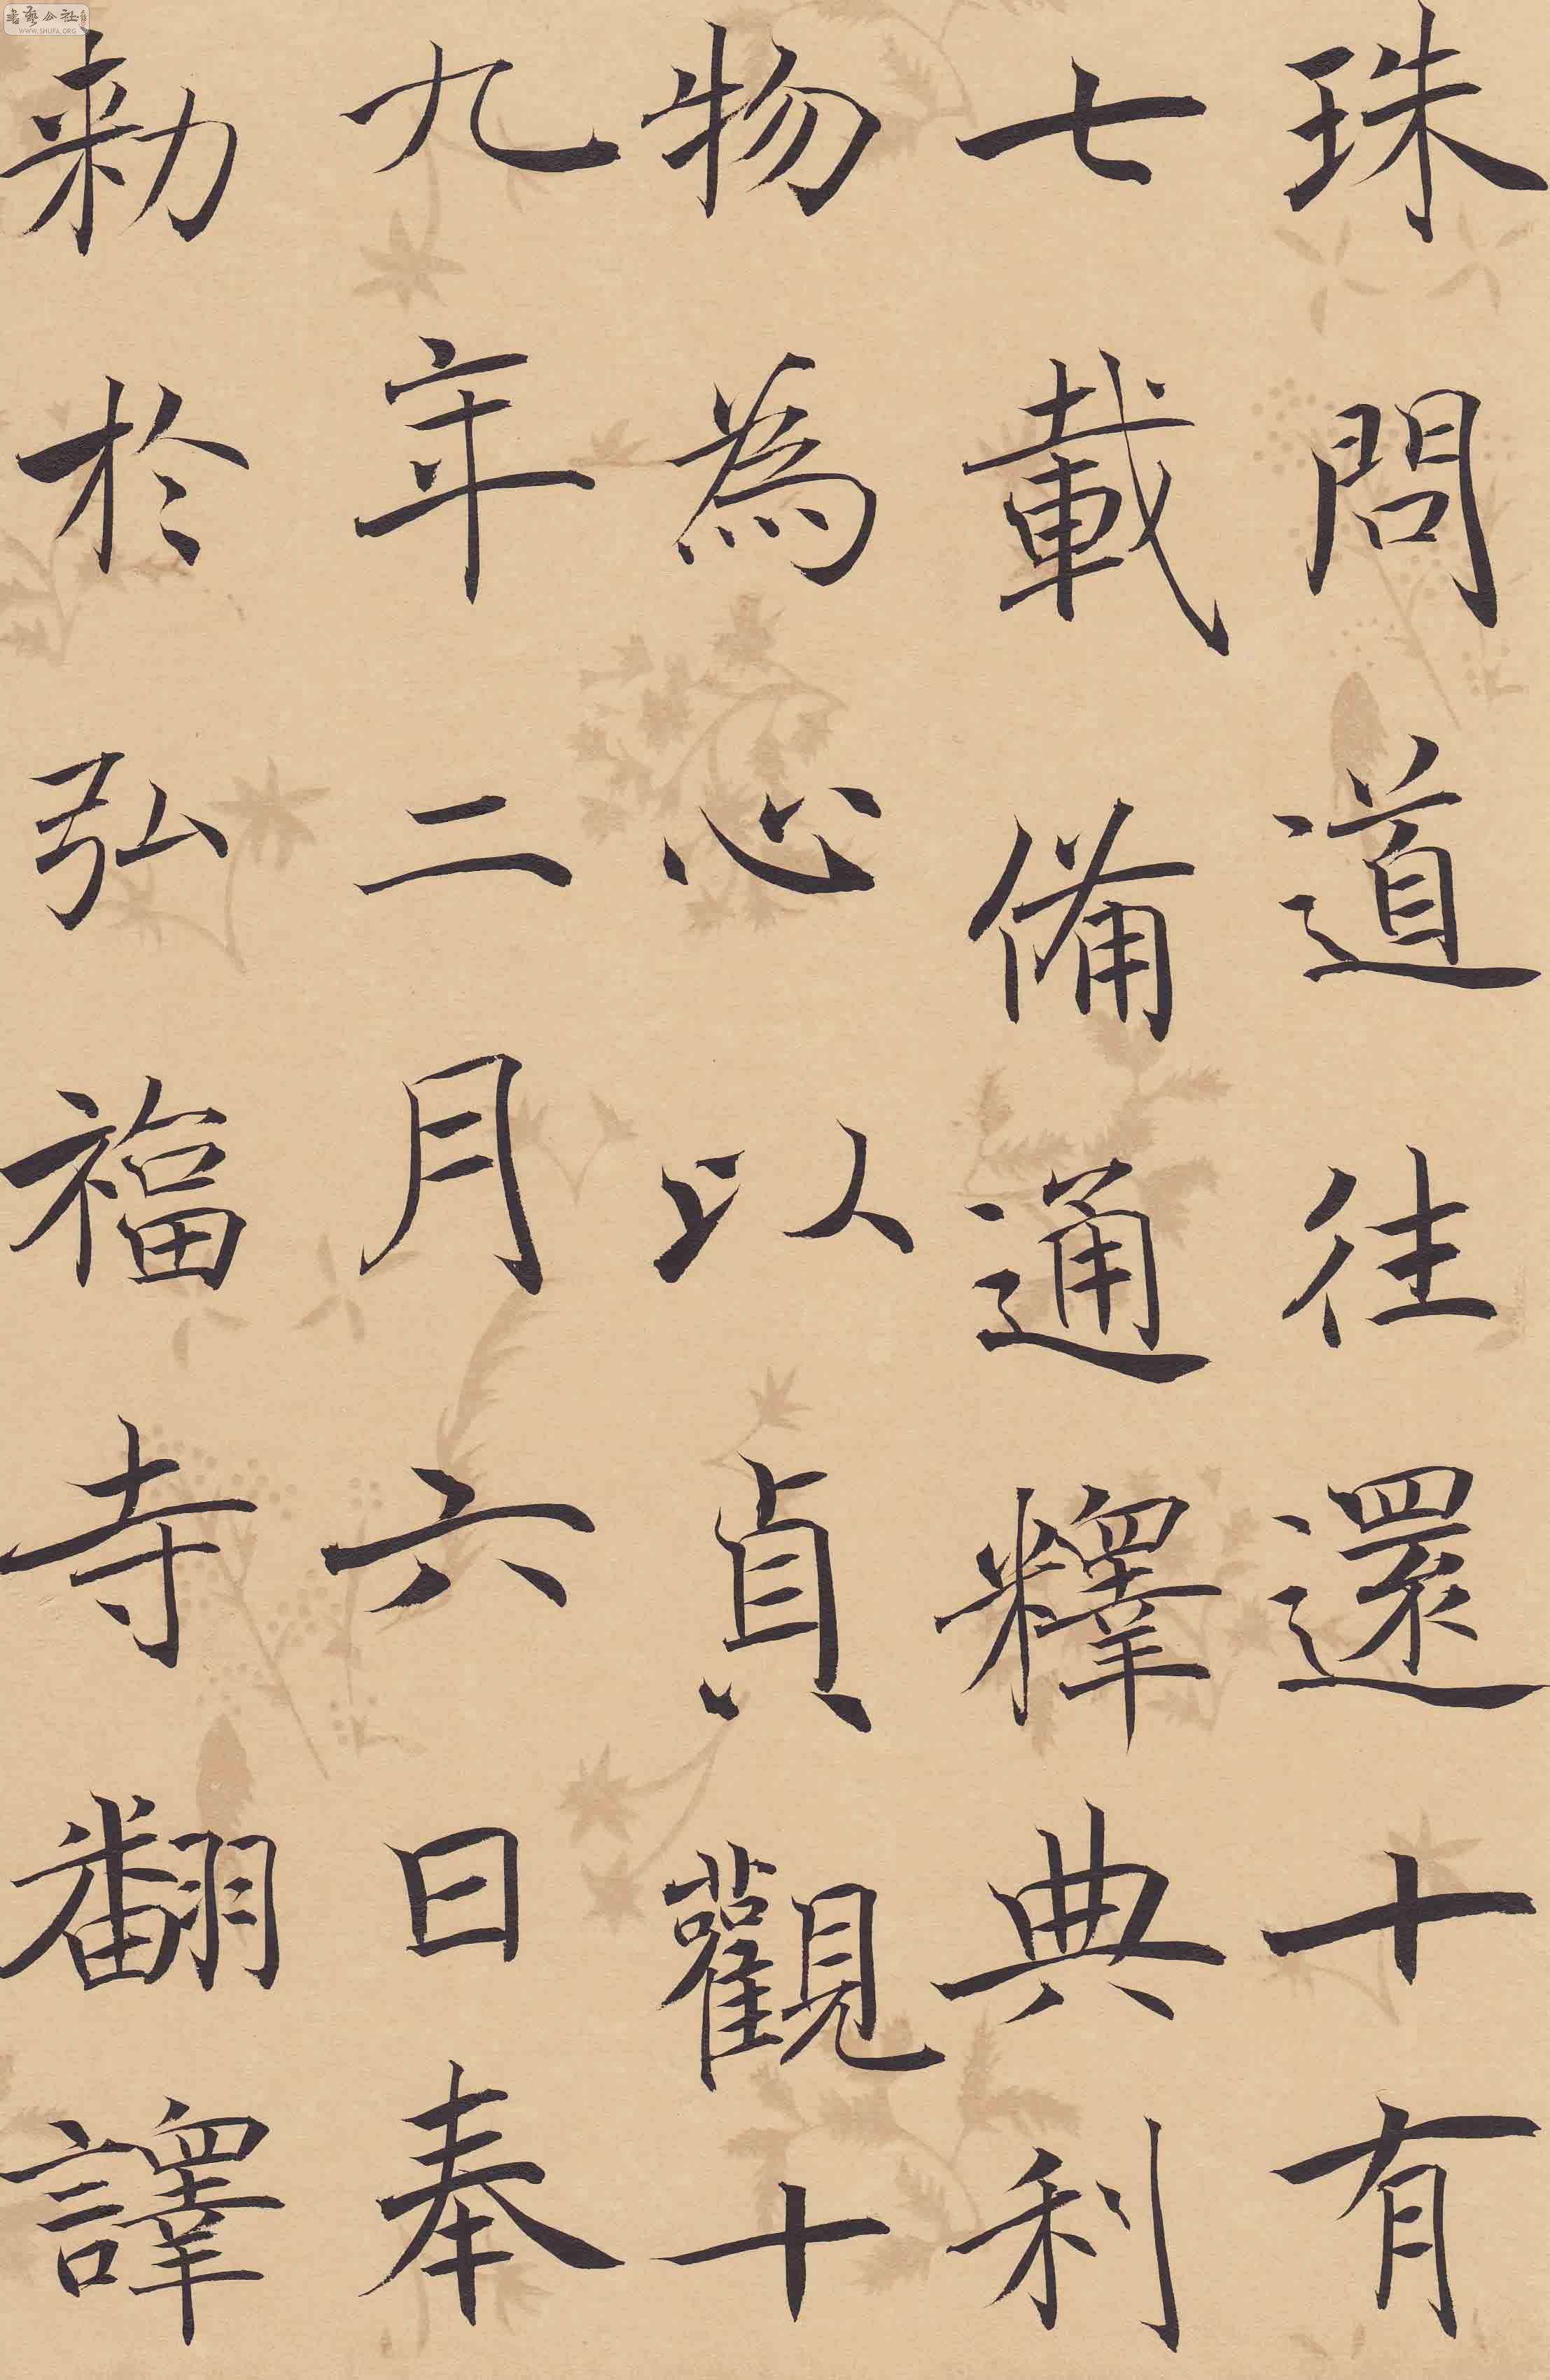 珠問道往還十有
七載備通釋典利
物為心以貞觀十
九年二月六日奉
勑於弘福寺翻譯
書藝公社
WWW.SHUFA.ORG